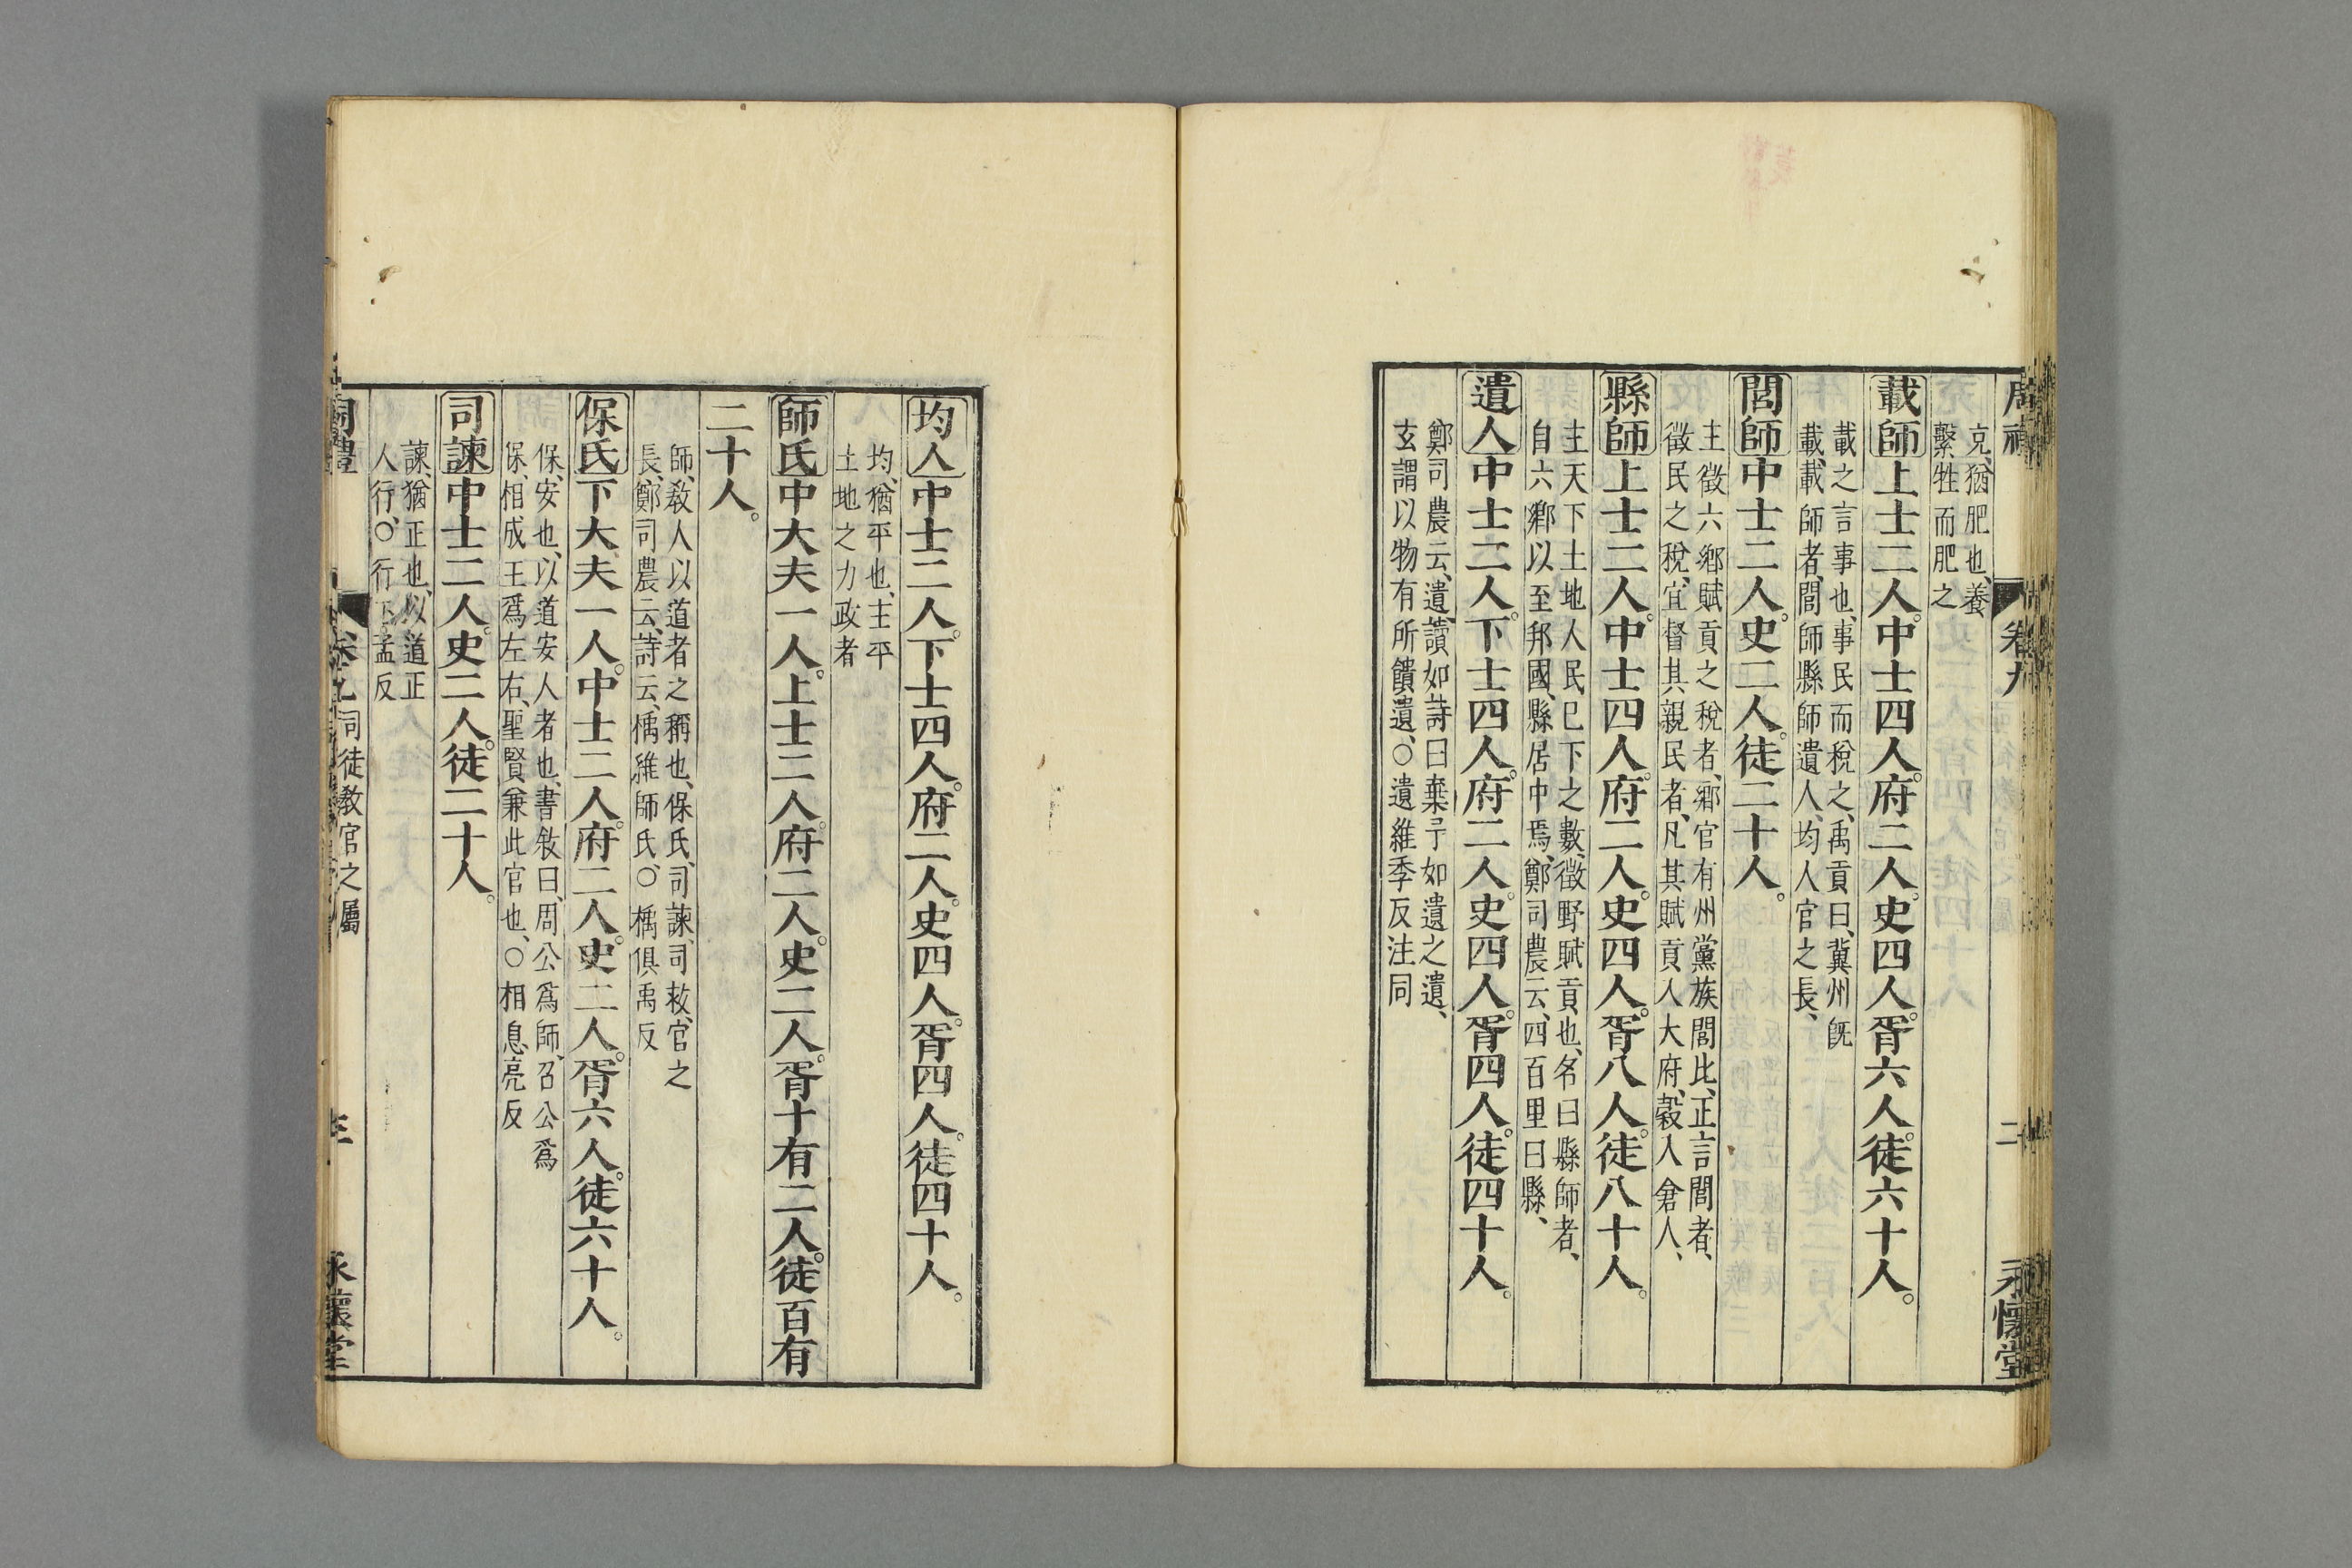 充、猶肥也、養
繫牲而肥之
載師上士二人。中士四人。府二人。史四人。胥六人。徒六十人。
載之言事也、事民而稅之、禹貢曰、冀州旣
載、載師者、閭師縣師遺人、均人官之長、
閭師中士二人。史二人。徒二十人。
主徵六鄉賦貢之稅者、鄉官有州黨族閭比、正言閭者、
徵民之稅、宜督其親民者、凡其賦貢入大府、穀入倉人、
縣師上士二人。中士四人。府二人。史四人。胥八人。徒八十人。
主天下土地人民已下之數、徵野賦貢也、名曰縣師者、
自六鄉以至邦國、縣居中焉、鄭司農云、四百里曰縣、
遺人中士二人。下士四人。府二人。史四人。胥四人。徒四十人。
鄭司農云、遺、讀如詩曰棄予如遺之遺、
玄謂以物有所饋遺、○遺維季反注同
周禮 卷九 二 永懷堂
均人中士二人。下士四人。府二人。史四人。胥四人。徒四十人。
均、猶平也、主平
土地之力政者
師氏中大夫一人。上士二人。府二人。史二人。胥十有二人。徒百有
二十人。
師、敎人以道者之稱也、保氏、司諫、司救、官之
長、鄭司農云、詩云、楀維師氏、○楀俱禹反
保氏下大夫一人。中士二人。府二人。史二人。胥六人。徒六十人。
保、安也、以道安人者也、書敘曰、周公爲師、召公爲
保、相成王爲左右、聖賢兼此官也、○相息亮反
司諫中士二人。史二人。徒二十人。
諫、猶正也、以道正
人行、○行下孟反
周禮 卷九 司徒敎官之屬 三 永懷堂